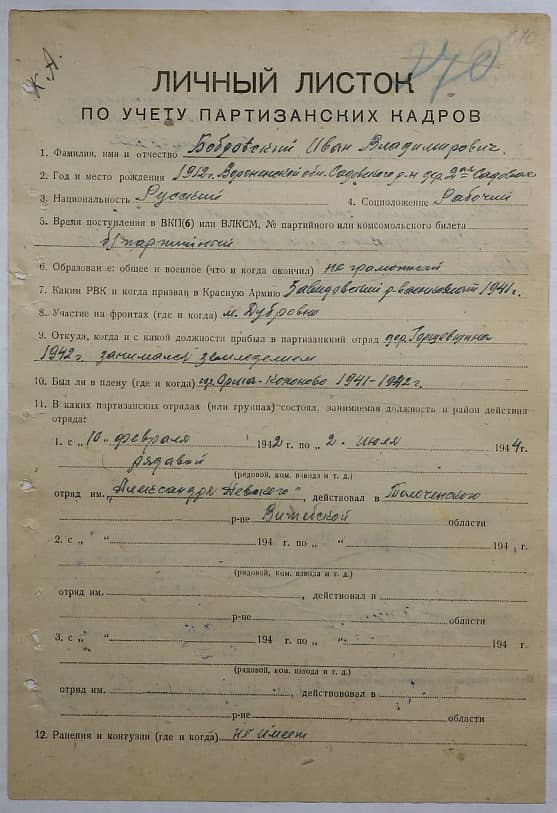 К.А.
270
ЛИЧНЫЙ ЛИСТОК
ПО УЧЕТУ ПАРТИЗАНСКИХ КАДРОВ
1. Фамилия, имя и отчество Бобровский Иван Владимирович.
2. Год и место рождения 1912г. Воронежской обл. Садовского р-н дер. 2ая Садовая
3. Национальность Русский 4. Соцположение Рабочий
5. Время поступления в ВКП(б) или ВЛКСМ, № партийного или комсомольского билета
б/партийный
6. Образование: общее и военное (что и когда окончил) не грамотный
7. Каким РВК и когда призван в Красную Армию Завидовский р-военкомат 1941г.
8. Участие на фронтах (где и когда) м. Дубровно
9. Откуда, когда и с какой должности прибыл в партизанский отряд дер.
1942г. занимался земледелием
10. Был ли в плену (где и когда) гор. Орша-Коханово 1941-1942г.
11. В каких партизанских отрядах (или группах) состоял, занимаемая должность и район действия
отряда:
1. с „10" февраля 1942г. по „2" июля 1944г.
рядавой
(рядовой, ком. взвода и т. д.)
отряд им. „Александра Невского", действовал в Толоченского
р-не Витебской области
2. с „ " 194 г. по „ " 194 г.
(рядовой, ком. взвода и т. д.)
отряд им. , действовал в
р-не области
3. с „ " 194 г. по „ " 194 г.
(рядовой, ком. взвода и т. д.)
отряд им. , действововал в
р-не области
12. Ранения и контузии (где и когда) не имеет